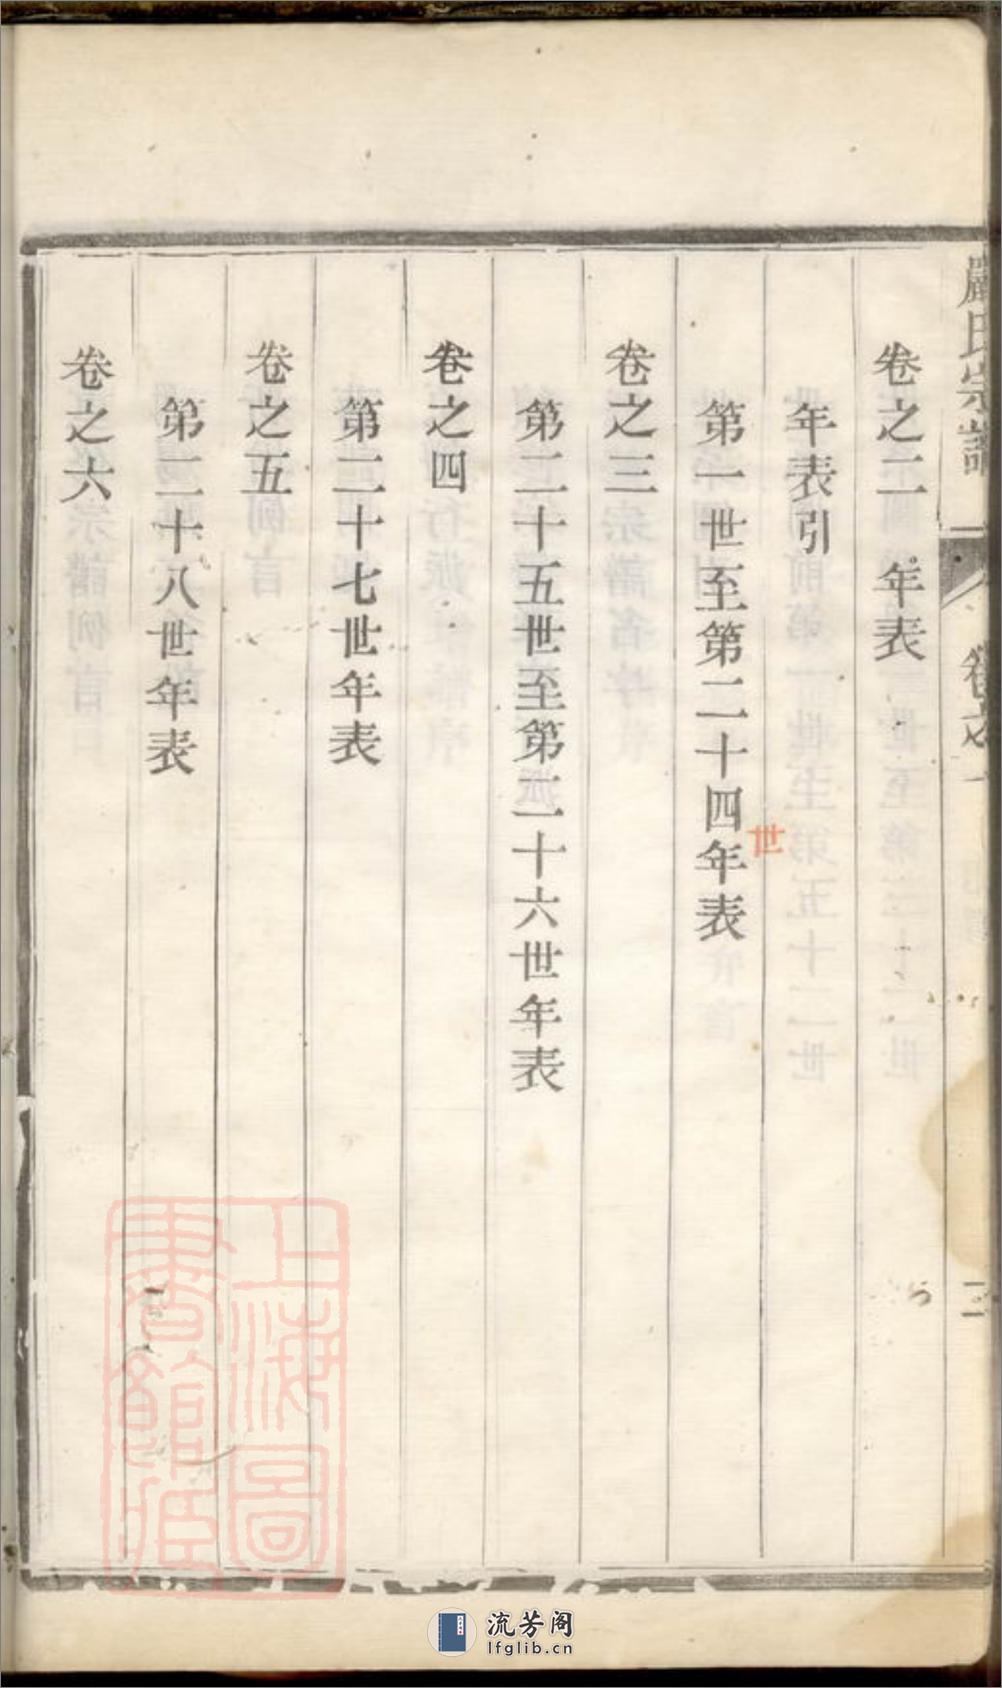 嚴氏宗譜 卷之一 二
卷之二 年表
年表引
第一世至第二十四年表
世
卷之三
第二十五世至第二十六世年表
卷之四
第二十七世年表
卷之五
第二十八世年表
卷之六
上海圖書館藏
流芳阁
lfglib.cn